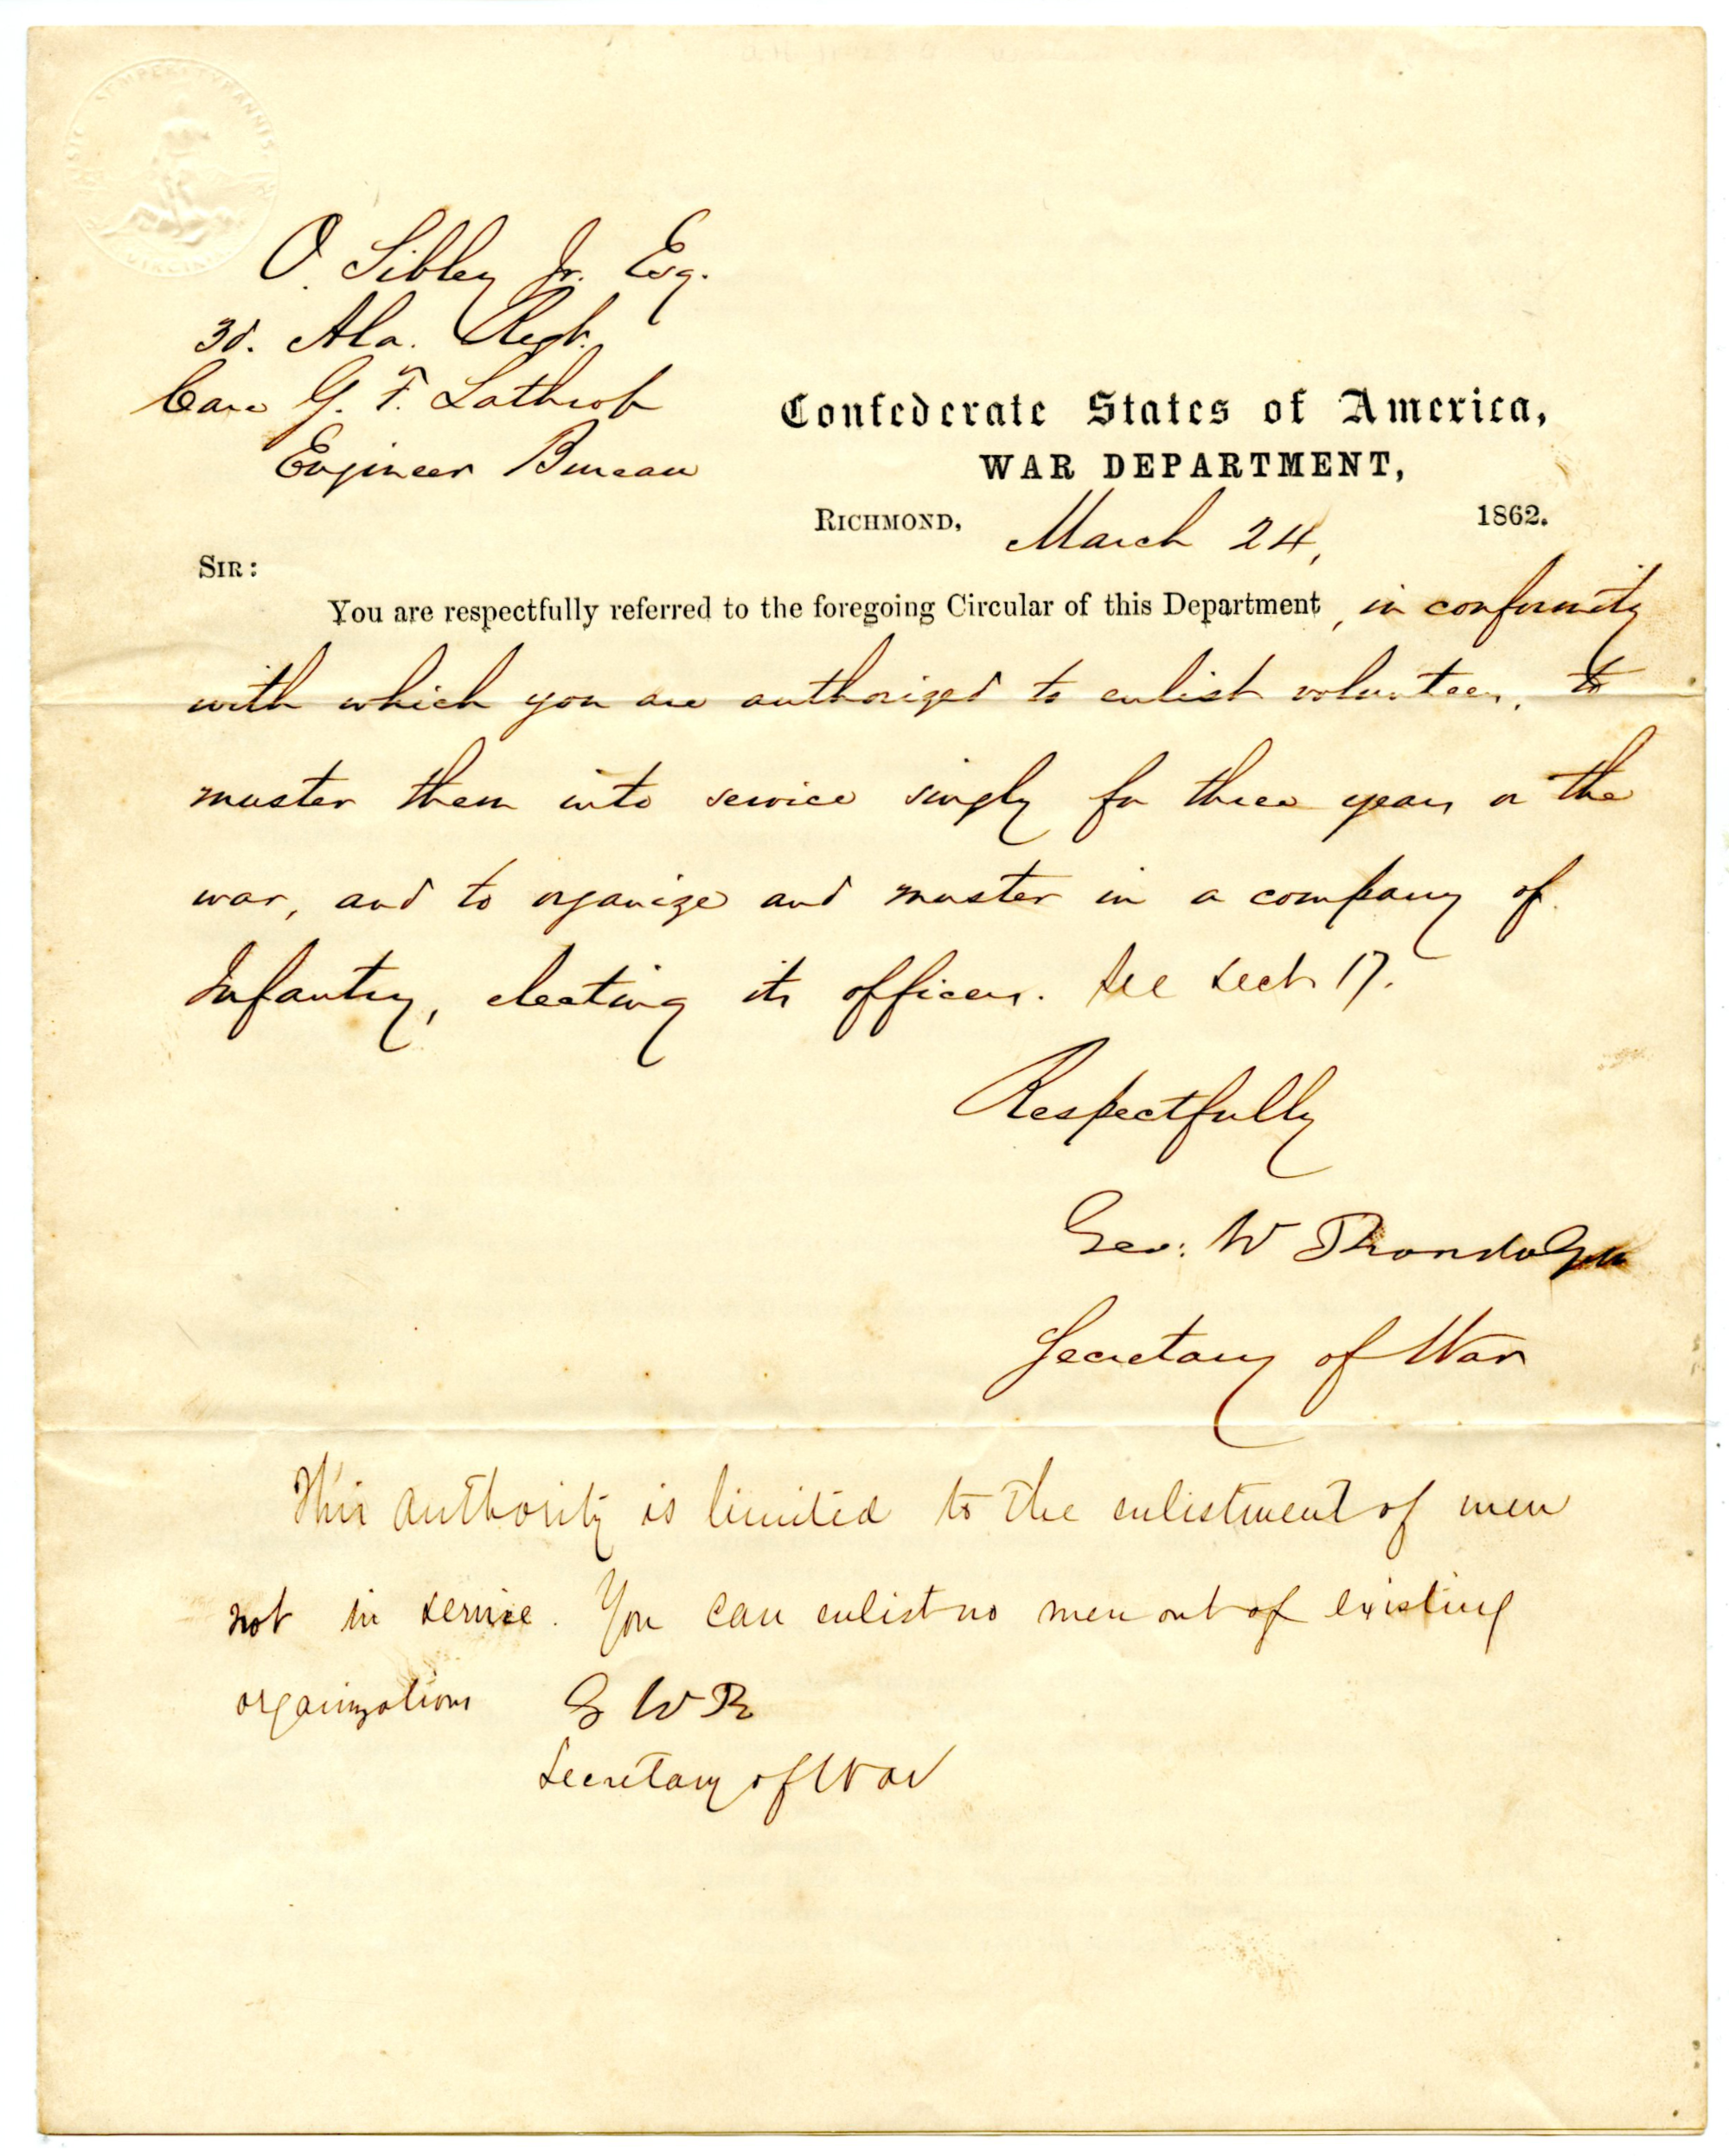 SIC SEMPER TYRANNIS
VIRGINIA
O. Sibley Jr. Esq.
3d. Ala. Regt.
Care G. F. Lathrop
Engineer Bureau
Confederate States of America,
WAR DEPARTMENT,
RICHMOND, March 24, 1862.
SIR:
You are respectfully referred to the foregoing Circular of this Department, in conformity
with which you are authorized to enlist volunteers, to
muster them into service singly for three years or the
war, and to organize and muster in a company of
Infantry, electing its officers. See Sect 17.
Respectfully
Geo: W Randolph
Secretary of War
This authority is limited to the enlistment of men
not in service. You can enlist no men out of existing
organizations G W R
Secretary of War